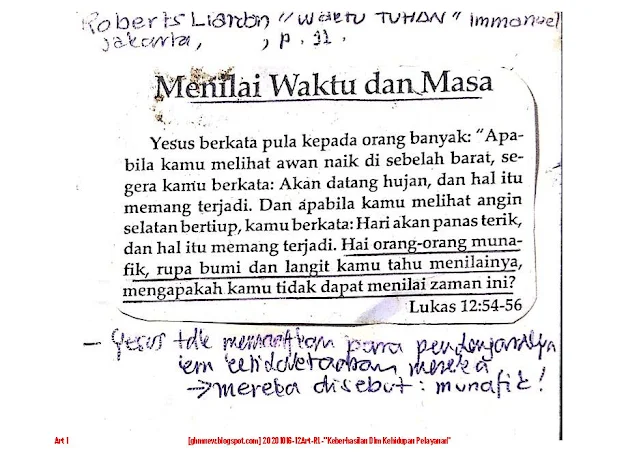 Roberts Liardon "WAKTU TUHAN" Immanuel
Jakarta, , p. 91.
Menilai Waktu dan Masa
Yesus berkata pula kepada orang banyak: "Apa-
bila kamu melihat awan naik di sebelah barat, se-
gera kamu berkata: Akan datang hujan, dan hal itu
memang terjadi. Dan apabila kamu melihat angin
selatan bertiup, kamu berkata: Hari akan panas terik,
dan hal itu memang terjadi. Hai orang-orang muna-
fik, rupa bumi dan langit kamu tahu menilainya,
mengapakah kamu tidak dapat menilai zaman ini?
Lukas 12:54-56
- Yesus tdk mematikan para pendengarnya
mereka
→ mereka disebut: munafik!
Art 1
[ghmnew.blogspot.com] 20201016-12Art-RL-"Keberhasilan Dlm Kehidupan Pelayanan"